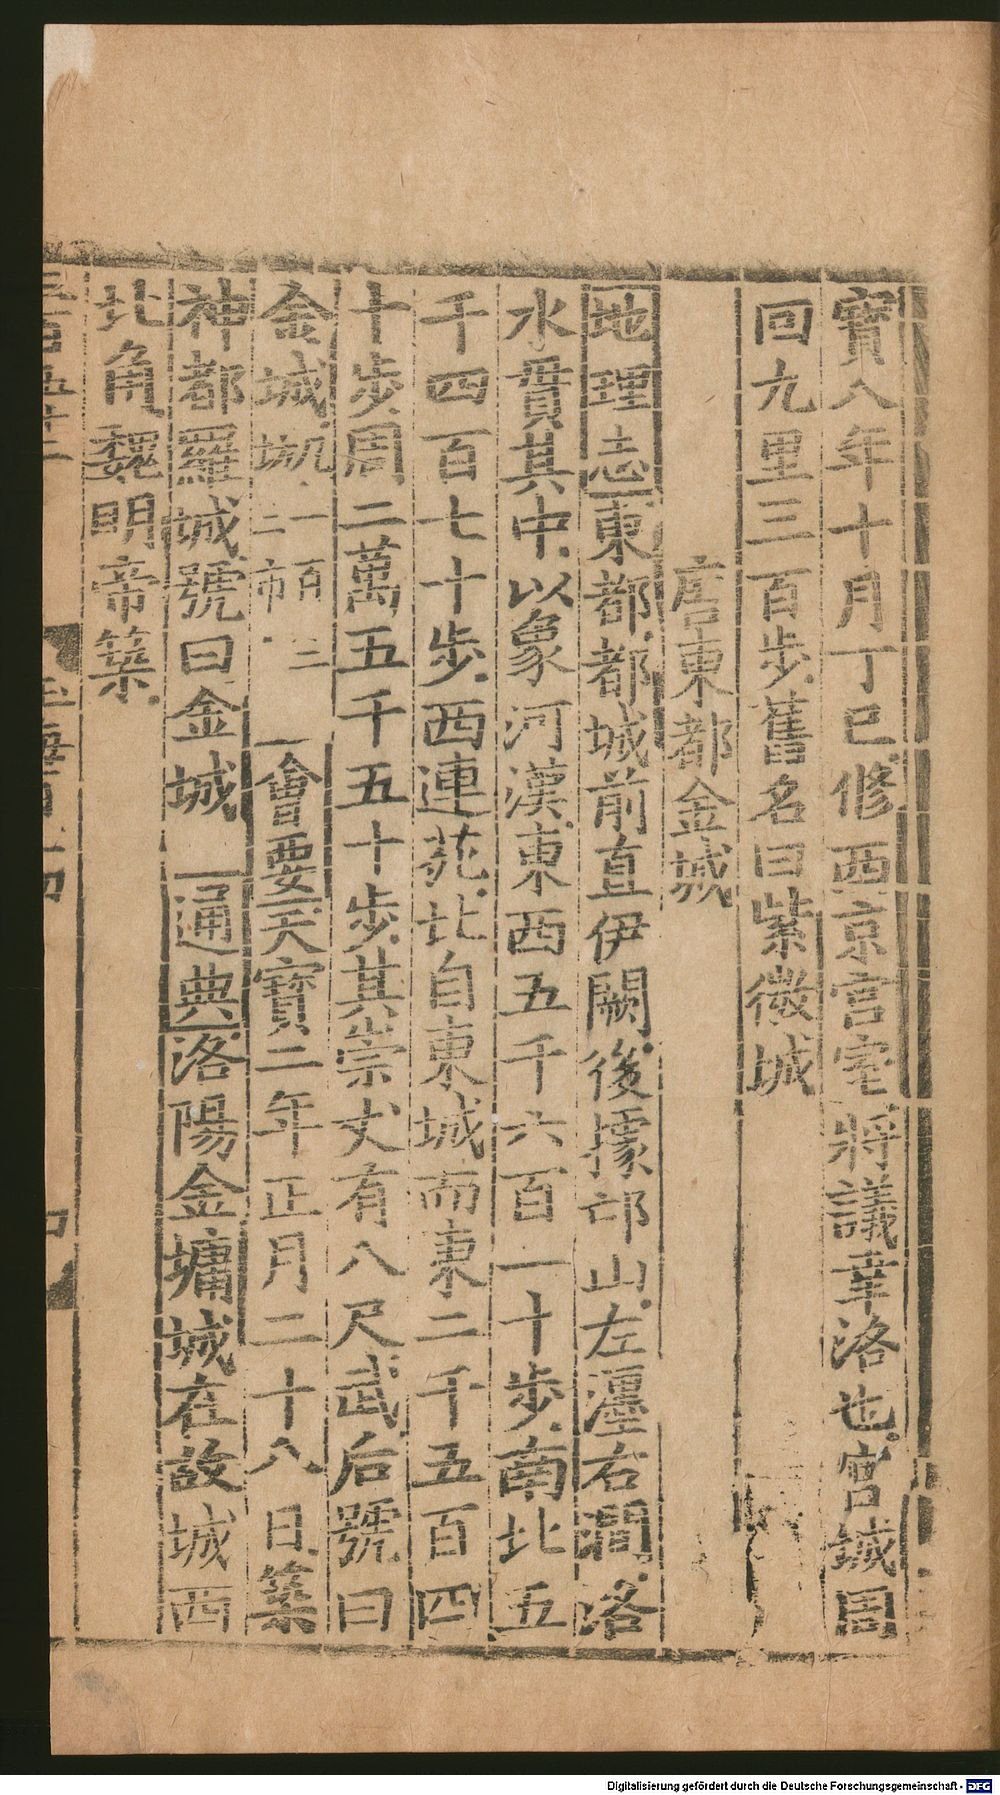 寶八年十月丁巳修西京宮室將議幸洛也宮城周
回九里三百步舊名曰紫微城
唐東都金城
地理志東都都城前直伊闕後據邙山左瀍右澗洛
水貫其中以象河漢東西五千六百一十步南北五
千四百七十步西連苑北自東城而東二千五百四
十步周二萬五千五十步其崇丈有八尺武后號曰
金城坊一百三二市 會要天寶二年正月二十八日築
神都羅城號曰金城 通典洛陽金墉城在故城西
北角魏明帝築
Digitalisierung gefördert durch die Deutsche Forschungsgemeinschaft - DFG